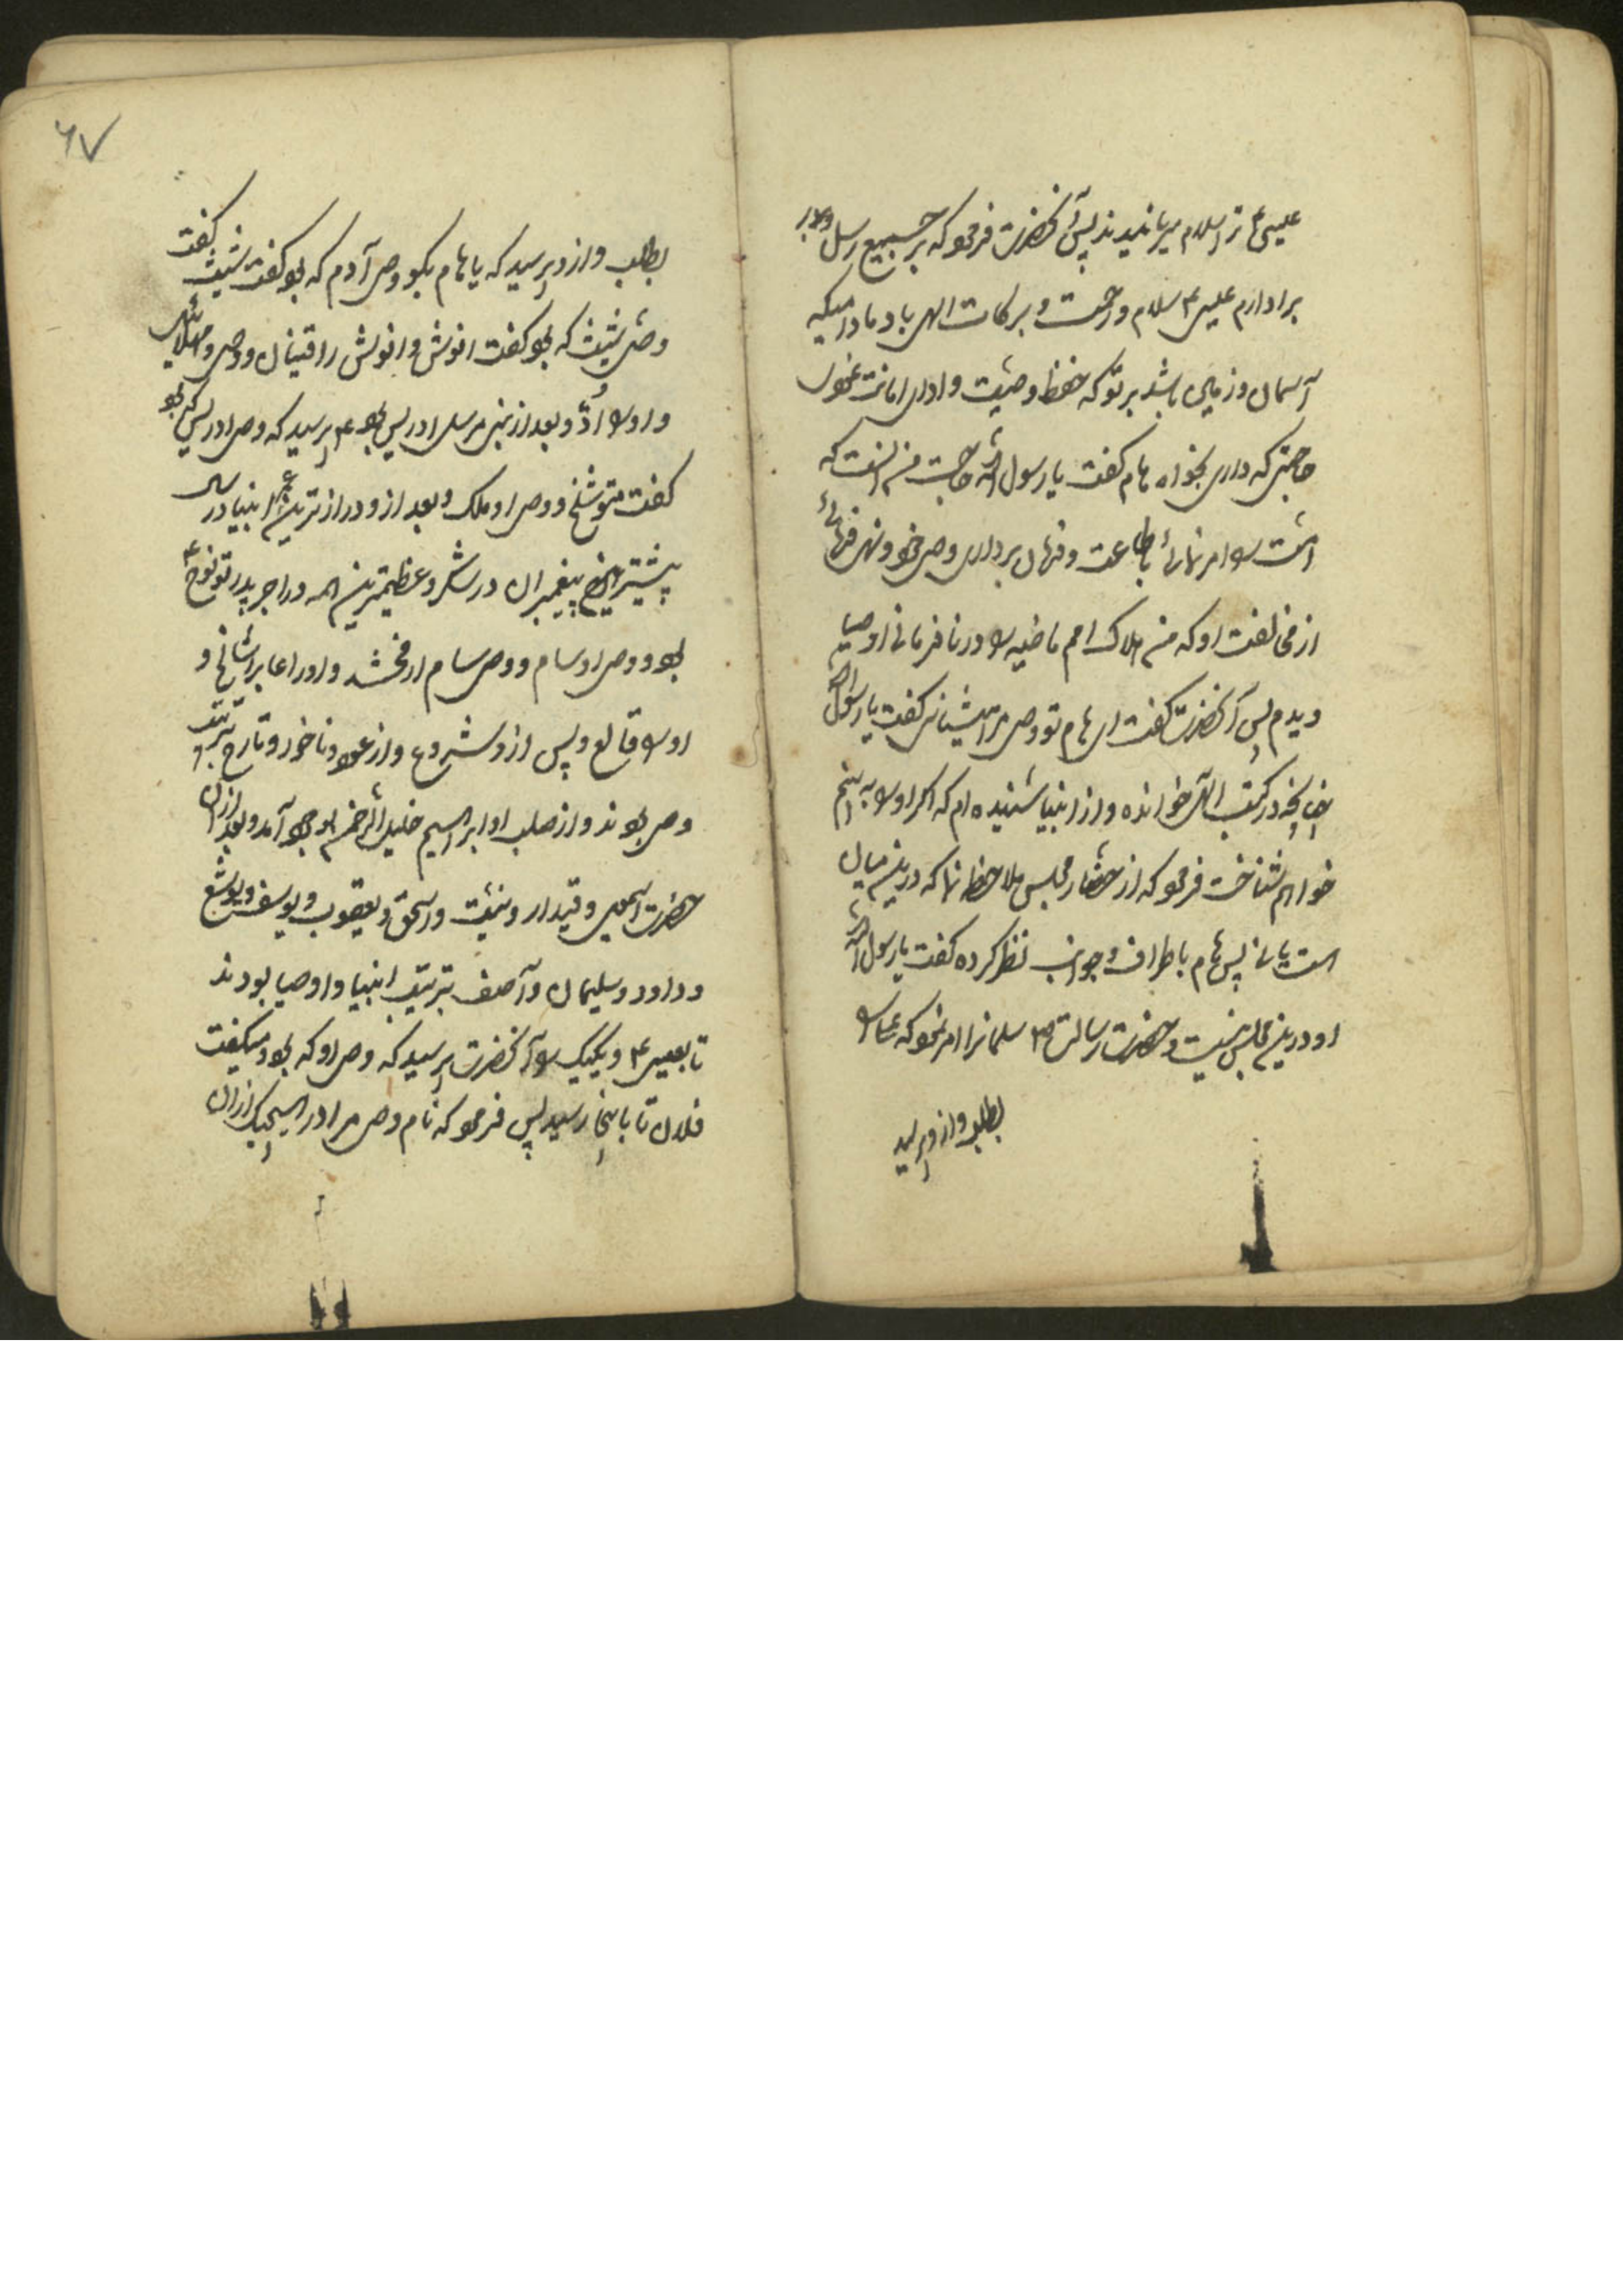 عیسی ع ترا سلام میرسانیدند پس آنحضرت فرمود که بر جمیع رسل و بر
برادارم عیسی ع سلام و رحمت و برکات الهی باد مادامیکه
آسمان و زمین باشد بر تو که حفظ وصیت و ادای امانت نمودی
حاجتی که داری بخواه هام گفت یا رسول الله حاجت من آنست که
امت را امر نمائی باطاعت و فرمان برداری وصی خود و نهی فرمائی
از مخالفت او که من هلاک امم ماضیه را در نافرمانی اوصیا
دیدم پس آنحضرت گفت ای هام تو وصی مرا میشناسی گفت یا رسول الله
چنانچه در کتب الهی خوانده و از انبیا شنیده‌ام که اگر او را به بینم
خواهم شناخت فرمود که از حضار مجلس ملاحظه نما که درین میان
است یا نه پس هام باطراف و جوانب نظر کرده گفت یا رسول الله
او درین مجلس نیست و حضرت رسالت ص سلمانرا امر نمود که علی را
بطلب و از و پرسید
۶۷
بطلب و از و پرسید که یا هام بگو وصی آدم که بود گفت شیث گفت
وصی شیث که بود گفت انوش و انوش را قینان و وصی و مهلائیل
و او را اُدّ و بعد از نبی مرسل ادریس بود ع پرسید که وصی ادریس که بود
گفت متوشلخ و وصی او ملک و بعد از و درازترین عمر انبیا در
پیشترین پیغمبران در شکر و عظیمترین همه در اجر پدر تو نوح ع
بود و وصی او سام و وصی سام ارفخشد و او را عابر شالخ و
او را قالع و پس از و شروع و از عود ناخور و تارخ بترتیب
وصی بودند و از صلب او ابراهیم خلیل الرحمن بوجود آمد و بعد از آن
حضرت اسمعیل و قیدار و نبیت و اسحق و یعقوب و یوسف و یوشع
و داود و سلیمان و آصف بترتیب انبیا و اوصیا بودند
تا بعیسی ع و یکیک را آنحضرت پرسید که وصی او که بود میگفت
فلان تا باینجا رسید پس فرمود که نام وصی مرا در هیچیک از آن